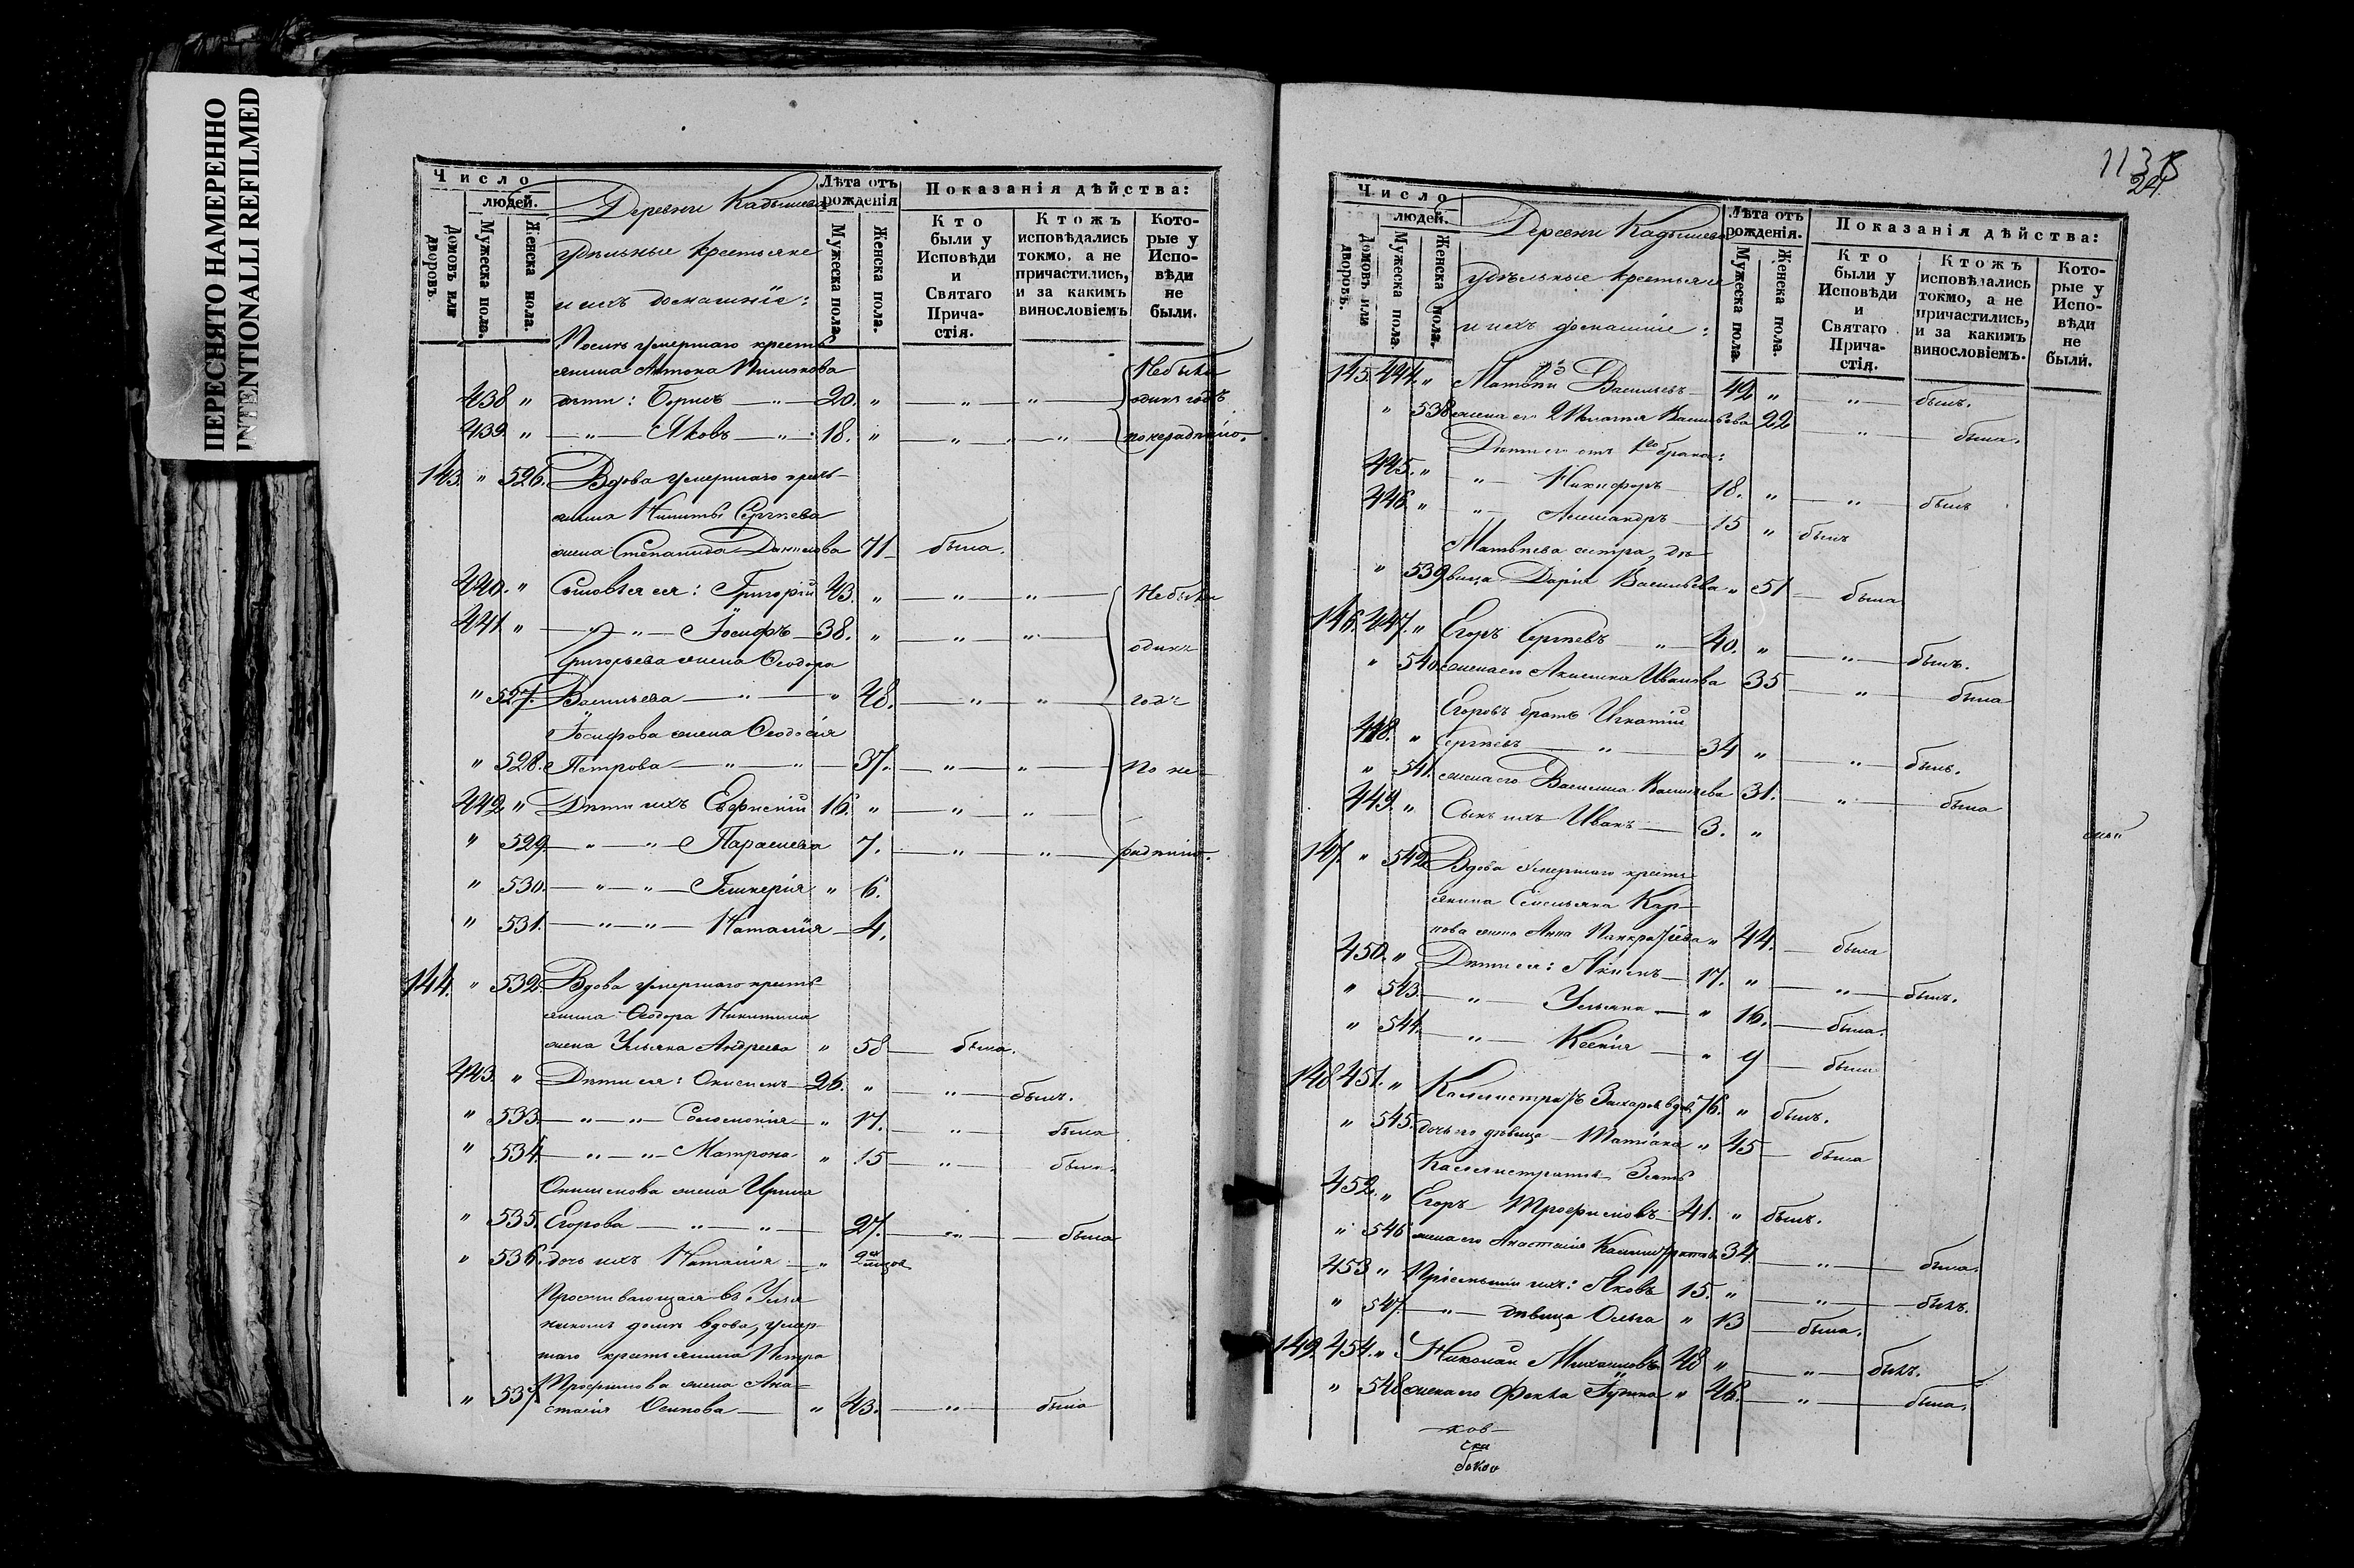 ПЕРЕСНЯТО НАМЕРЕННО
INTENTIONALLI REFILMED
Число
людей.
Домовъ или дворовъ.
Мужеска пола.
Женска пола.
Деревни Кадышева
удѣльные крестьяне
и ихъ домашніе:
Лѣта отъ рожденія
Мужеска пола.
Женска пола.
Показанія дѣйства:
Кто были у Исповѣди и Святаго Причастія.
Ктожъ исповѣдались токмо, а не причастились, и за какимъ винословіемъ
Которые у Исповѣди не были.
умершаго кресть
янина Антона
438 " дѣти: Борисъ — " — 20. " — " — " — Небыли одинъ годъ
439. " — " — Яковъ — " — 18. " — " — " — понерадѣнію.
143. " 526. Вдова умершаго кресть-
янина Никиты Сергѣева
жена Степанида Данилова 71 — была.
440. " Сыновья ея: Григорій 43. " — " — " — Небыли
441. " — " — " — Іосифъ — 38. " — " — " — одинъ
Григорьева жена Ѳеодора
" 527. Васильева — " — " 48. — " — " — годъ
Іосифова жена Ѳеодосія
" 528. Петрова — " — " — 37. — " — " — по не-
442. " Дѣти ихъ 16. " — " — "
" 529. — " — " — Параскева 7. — " — " — радѣнію.
" 530. — " — " — Гликерія " 6.
" 531. — " — " — Наталія — 4.
144. " 532. Вдова умершаго кресть-
янина Ѳеодора Никитина
жена Ульяна Андреева " 58 — была.
443. " Дѣти ея: Онисимъ — 26. " — " — былъ.
" 533. — " — " — Соломонія — " 17. — " — была
" 534. — " — " — Матрона " 15 — " — была.
Онисимова жена Ирина
" 535. Егорова — " — " — 27. — " — была
" 536. дочь ихъ Наталія — " 2
Проживающая въ Улья
нином домѣ вдова, умер-
шаго крестьянина Петра
Трофимова жена Ана-
" 537 стасія Осипова — " 43. — " — была
1138
24
Число
людей.
Домовъ или дворовъ.
Мужеска пола.
Женска пола.
Деревни Кадышева
удѣльные крестьяне
и ихъ домашніе:
Лѣта отъ рожденія.
Мужеска пола.
Женска пола.
Показанія дѣйства:
Кто были у Исповѣди и Святаго Причастія.
Ктожъ исповѣдались токмо, а не причастились, и за какимъ винословіемъ.
Которые у Исповѣди не были.
145. 444. " Матвѣй Васильевъ — 42 " — " — былъ.
" 538 жена его Васильева 22 — " — была.
Дѣти его отъ 1го брака:
445. " — " — Никифоръ — 18. " — " — былъ
446. " — " — Александръ — 15 " былъ
Матвѣева сестра, дѣ-
" 539 вица Дарія Васильева " 51 — была
146. 447. " Егоръ Сергѣевъ — " — 40. " — " — былъ.
" 540. жена его Акилина Иванова 35 — " — была
Егоровъ братъ Игнатій
448. " Сергѣевъ — " — 34 " — " — былъ.
" 541. жена его Василиса Васильева 31. — " — была
449. " Сынъ ихъ Иванъ — 3. "
147. " 542 Вдова умершаго кресть-
янина Емельяна Кар-
пова жена Анна Панкратіева " 44. — была
450. " Дѣти ея: Акимъ — 17. " — " — былъ.
" 543. — " — Ульяна — " 16. — была.
" 544. — " — Ксенія — " 9 — была
148 451. " Каллистратъ Захаровъ вдов. 76. " былъ.
" 545. дочь его дѣвица — Татіана " 45 — была
Каллистратовъ Зять
452. " Егоръ Трофимовъ — 41. " былъ.
" 546 жена его Анастасія Каллистратова 34. — " — была.
453 " Пріемыши ихъ: Яковъ 15. " — " — былъ.
" 547. — " — дѣвица Ольга " 13 — была.
149. 454. " Николай Михайловъ 48 " — " — былъ.
" 548 жена его Ѳекла " 46. — " — была.